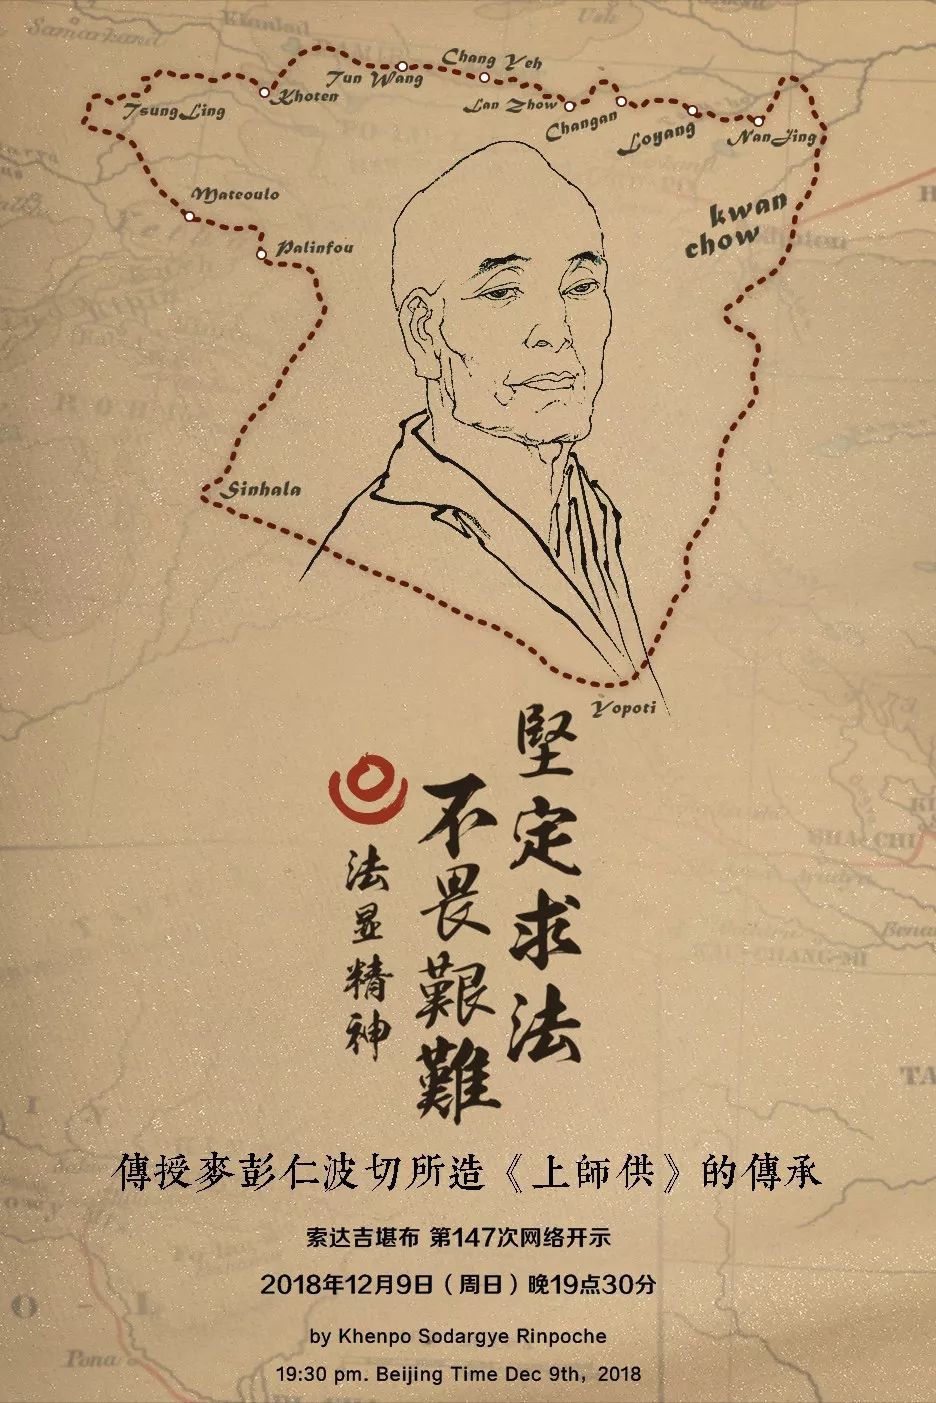 Samarkand
Chang Yeh
Tun Wang
Khoten
Lan Zhow
Tsung Ling
Changan
Loyang
Nan Jing
Mateoulo
kwan
chow
Palinfou
Sinhala
Yopoti
堅定求法
不畏艱難
法显精神
傳授麥彭仁波切所造《上師供》的傳承
索达吉堪布 第147次网络开示
2018年12月9日（周日）晚19点30分
by Khenpo Sodargye Rinpoche
19:30 pm. Beijing Time Dec 9th, 2018
Pona